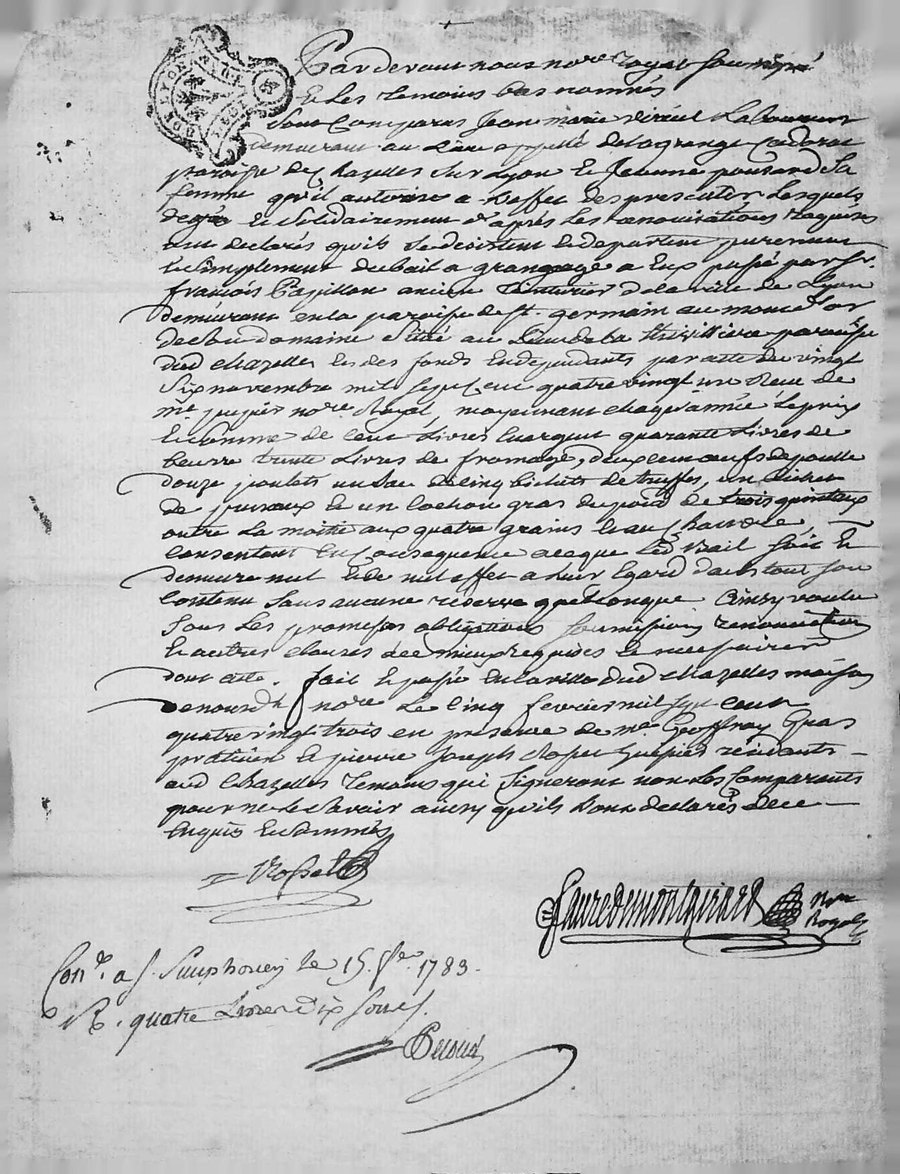 Pardevant nous no.re Royal soussigné
& les Temoins bas nommés
Sont Comparus Jean marie Laboureur
demeurant au Lieu appellé delagrange
paroisse de Chazelles Sur Lyon & Jeanne ponsard Sa
femme qu'il autorise a L'effet des presentes, Lesquels
degré & Solidairement & après Les renonciations Requises
ont declarés qu'ils Se desistent & departent purement
& Simplement du bail a grangeage a Eux passé par Sr.
francois Papillon ancien Teinturier de la ville de Lyon
demeurant en la paroisse de St. germain au mont d'or
de Son domaine Situé au Lieu de la thivilliere paroisse
dud Chazelles & des fonds En dependants par acte du vingt
Six novembre mil Sept Cent quatre vingt un Reçu de
me. pupier no.re Royal, moyennant chaque année Le prix
& Somme de Cent Livres En argent quarante Livres de
beurre trente Livres de fromage, deux Cent oeufs de poulle
douze poulets un Sac de Cinq bichets de truffes, un bichet
de & un Cochon gras du poids de trois quintaux
outre La moitié aux quatre grains & au Chanvre,
Consentent En Consequence a ce que Led Bail Soit &
demeure nul & de nul effet a Leur Egard dans tout Son
Contenu Sans aucune réserve quelconque Ainsy voulu
Sous Les promesses obligations Soumissions renonciations
& autres Clauses de mieux requises & necessaires
dont acte. fait & passé En la ville dud Chazelles maison
de nousd no.re Le Cinq fevrier mil Sept Cent
quatre vingt trois en presence de me. Geoffray Gras
praticien & pierre Joseph résidants
aud Chazelles Temoins qui Signeront non Les Comparants
pour ne Le Sçavoir ainsy qu'ils L'ont declarés de ce
Enquis & Sommés
faure de montgirard no.re
Royal
Con.lé a S. Simphorien le 15. f.er 1783.
R. quatre Livres Dix Sous